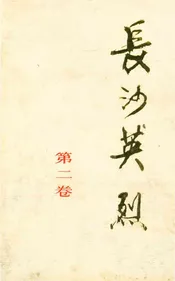 長沙英烈
第二卷